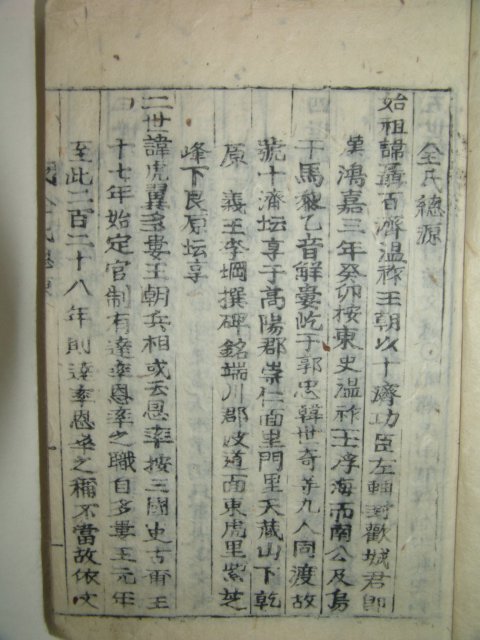 全氏總源
始祖諱聶百濟溫祚王朝以十濟功臣左輔封歡城君卽
漢鴻嘉三年癸卯按東史溫祚王浮海而南公及烏
干馬黎乙音解婁屹于郭忠韓世奇等九人同渡故
號十濟坛享于高陽郡崇仁面里門里天藏山下乾
原 義王李堈撰碑銘端川郡波道面東虎里紫芝
峰下艮原坛享
二世諱虎翼多婁王朝兵相或云恩率按三國史古爾王
十七年始定官制有達率恩率之職自多婁王元年
至此二百二十八年則達率恩率之稱不當故依文